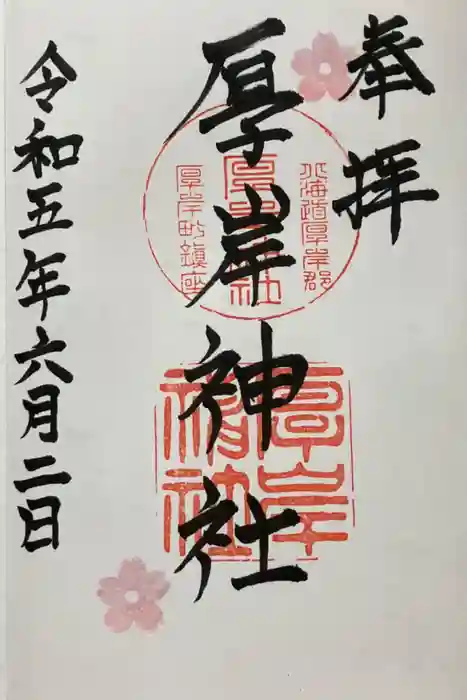 奉拝
厚岸神社
北海道厚岸郡
厚岸神社
厚岸町鎮座
厚岸
神社
令和五年六月二日